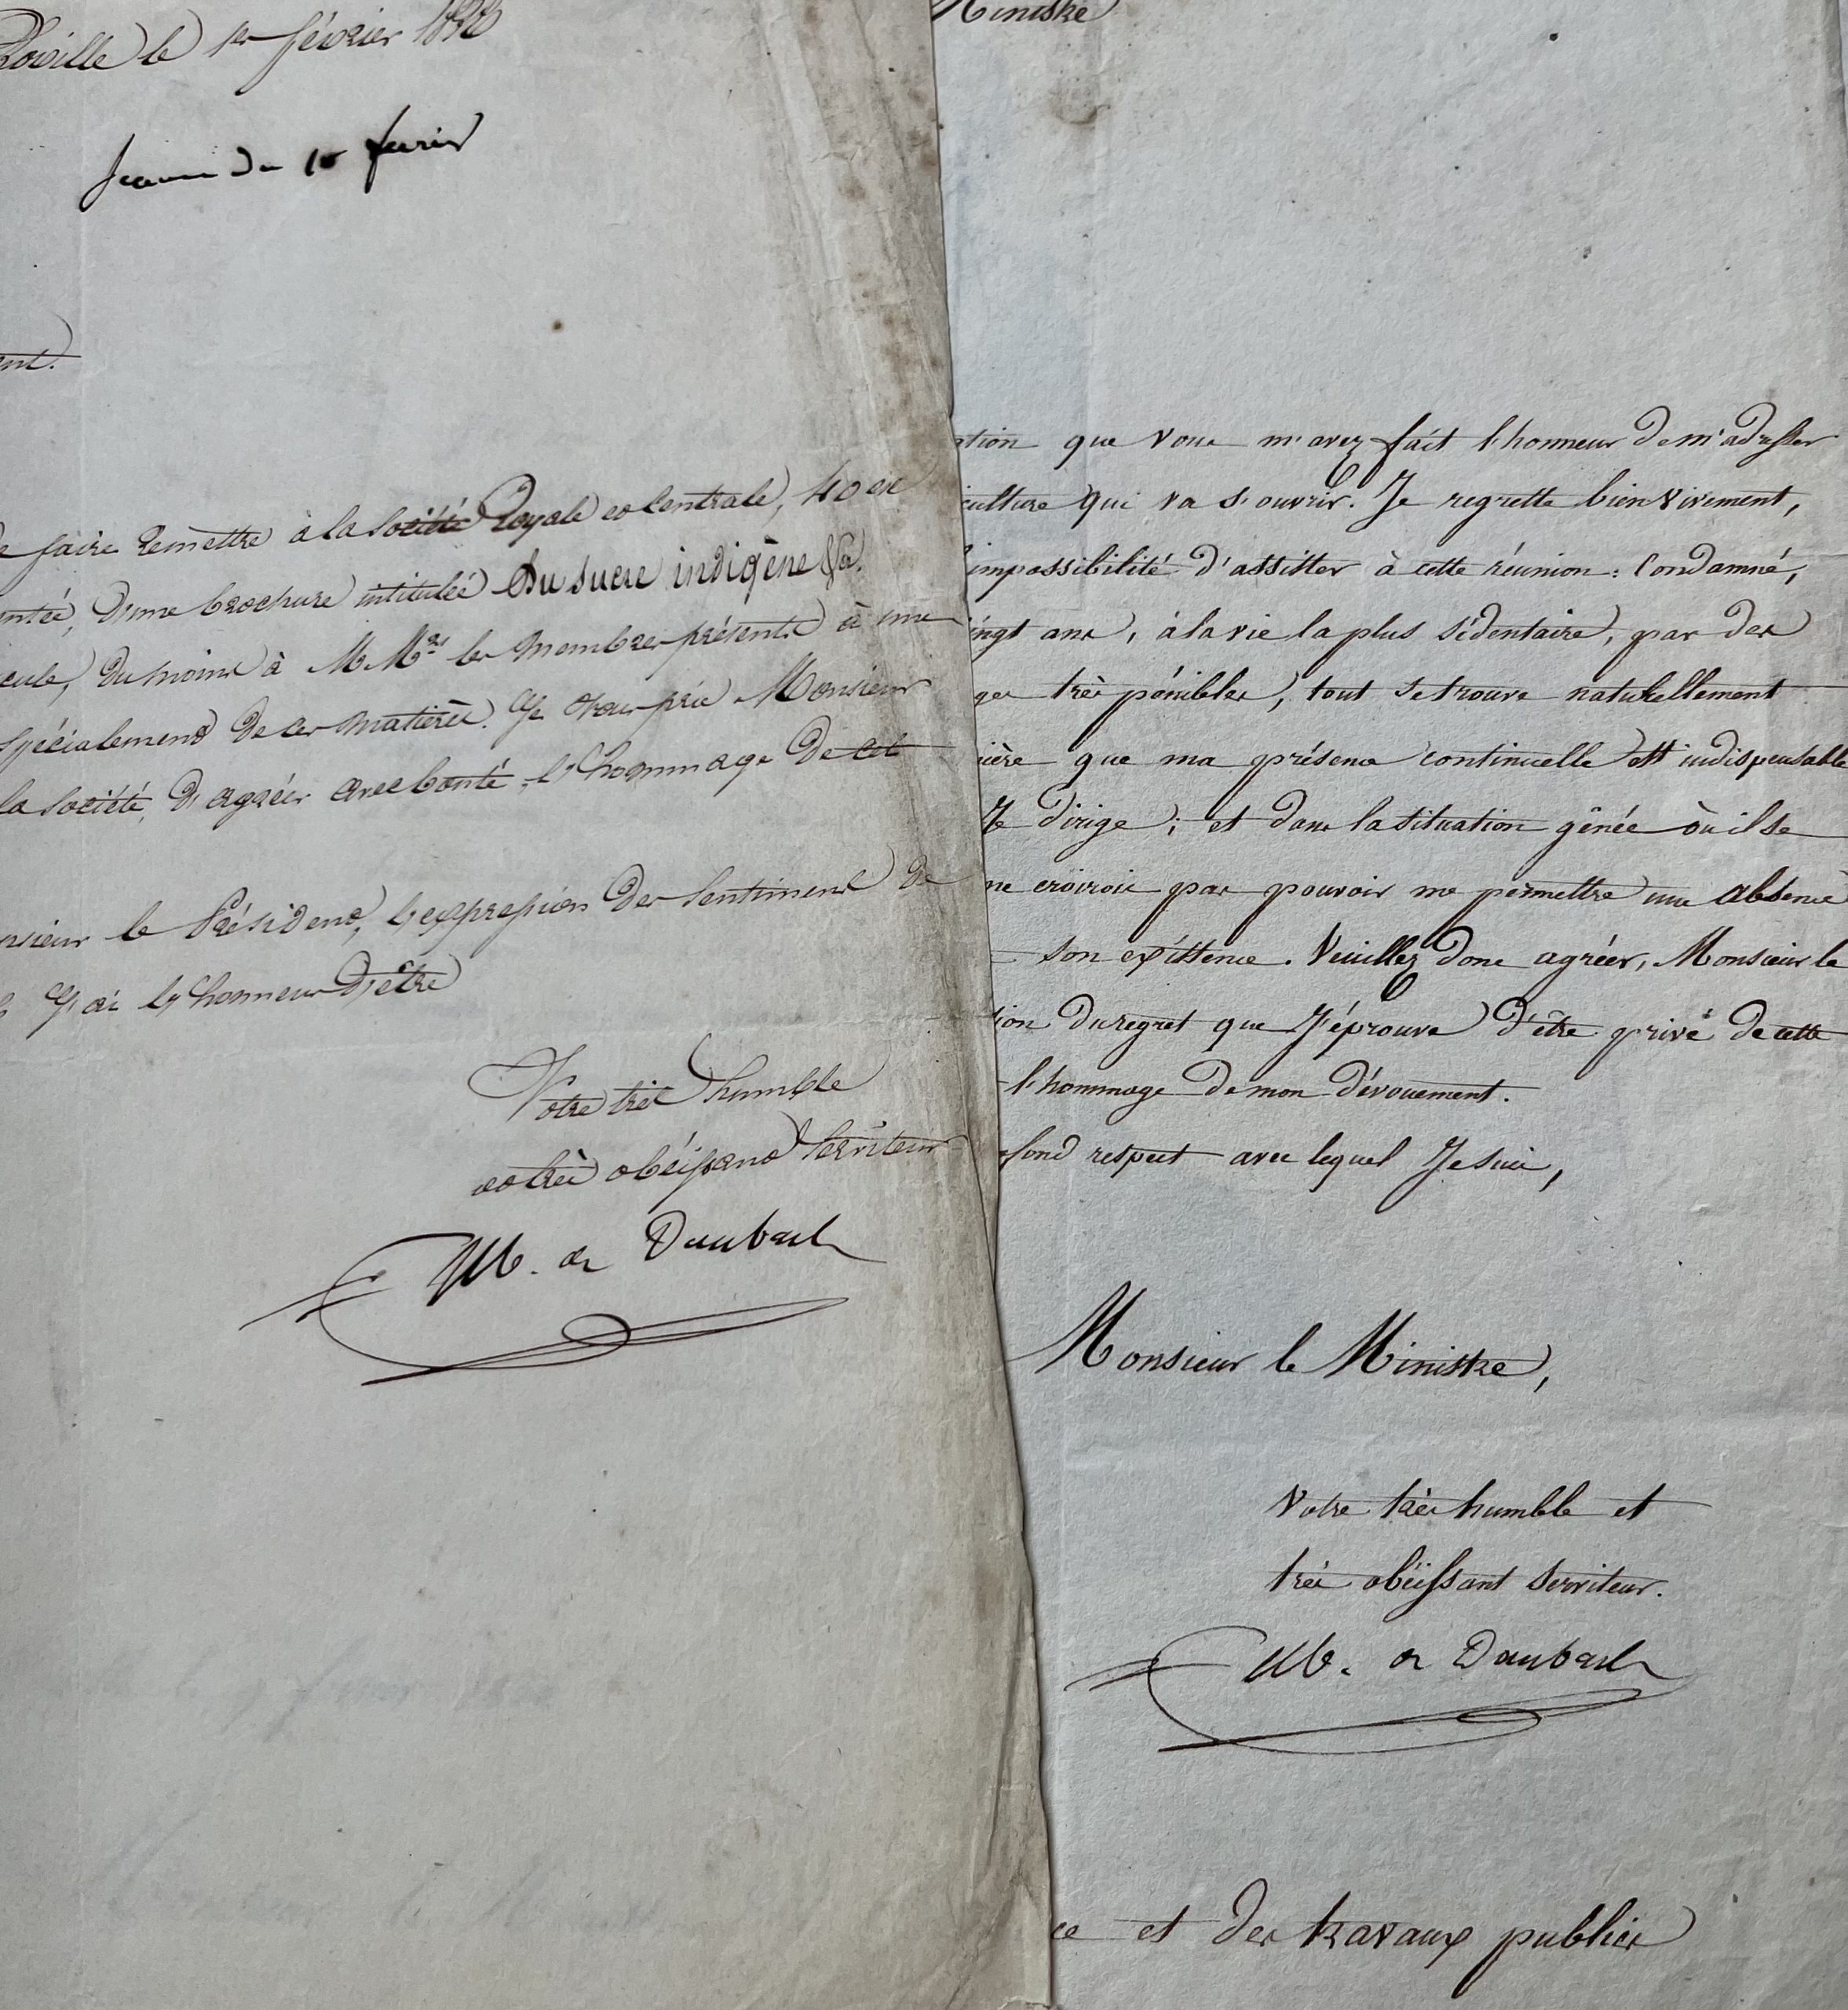 Roville le 1er février
février
ent.
de faire remettre à la Société Royale et Centrale, 40 ex
entée, d'une brochure intitulée Du sucre indigène &a.
cule, du moins à MMrs les membres présents à une
spécialement de ces matières. Je vous prie Monsieur
la Société, d'agréer avec bonté l'hommage de cet
nsieur le Président, l'expression des sentimens de
J'ai l'honneur d'être
Votre très humble
et très obéissant serviteur
M. de Dombasle
Ministre
ation que vous m'avez fait l'honneur de m'adresser
culture qui va s'ouvrir. Je regrette bien vivement,
l'impossibilité d'assister à cette réunion : Condamné,
vingt ans, à la vie la plus sédentaire, par des
ges très pénibles, tout se trouve naturellement
nière que ma présence continuelle est indispensable
Je dirige ; et dans la situation gênée où il se
ne croirois pas pouvoir me permettre une absence
son existence. Veuillez donc agréer, Monsieur le
tion du regret que J'éprouve d'être privé de cette
l'hommage de mon dévouement.
ofond respect avec lequel Je suis,
Monsieur le Ministre,
Votre très humble et
très obéissant serviteur.
M. de Dombasle
ce et des travaux publics